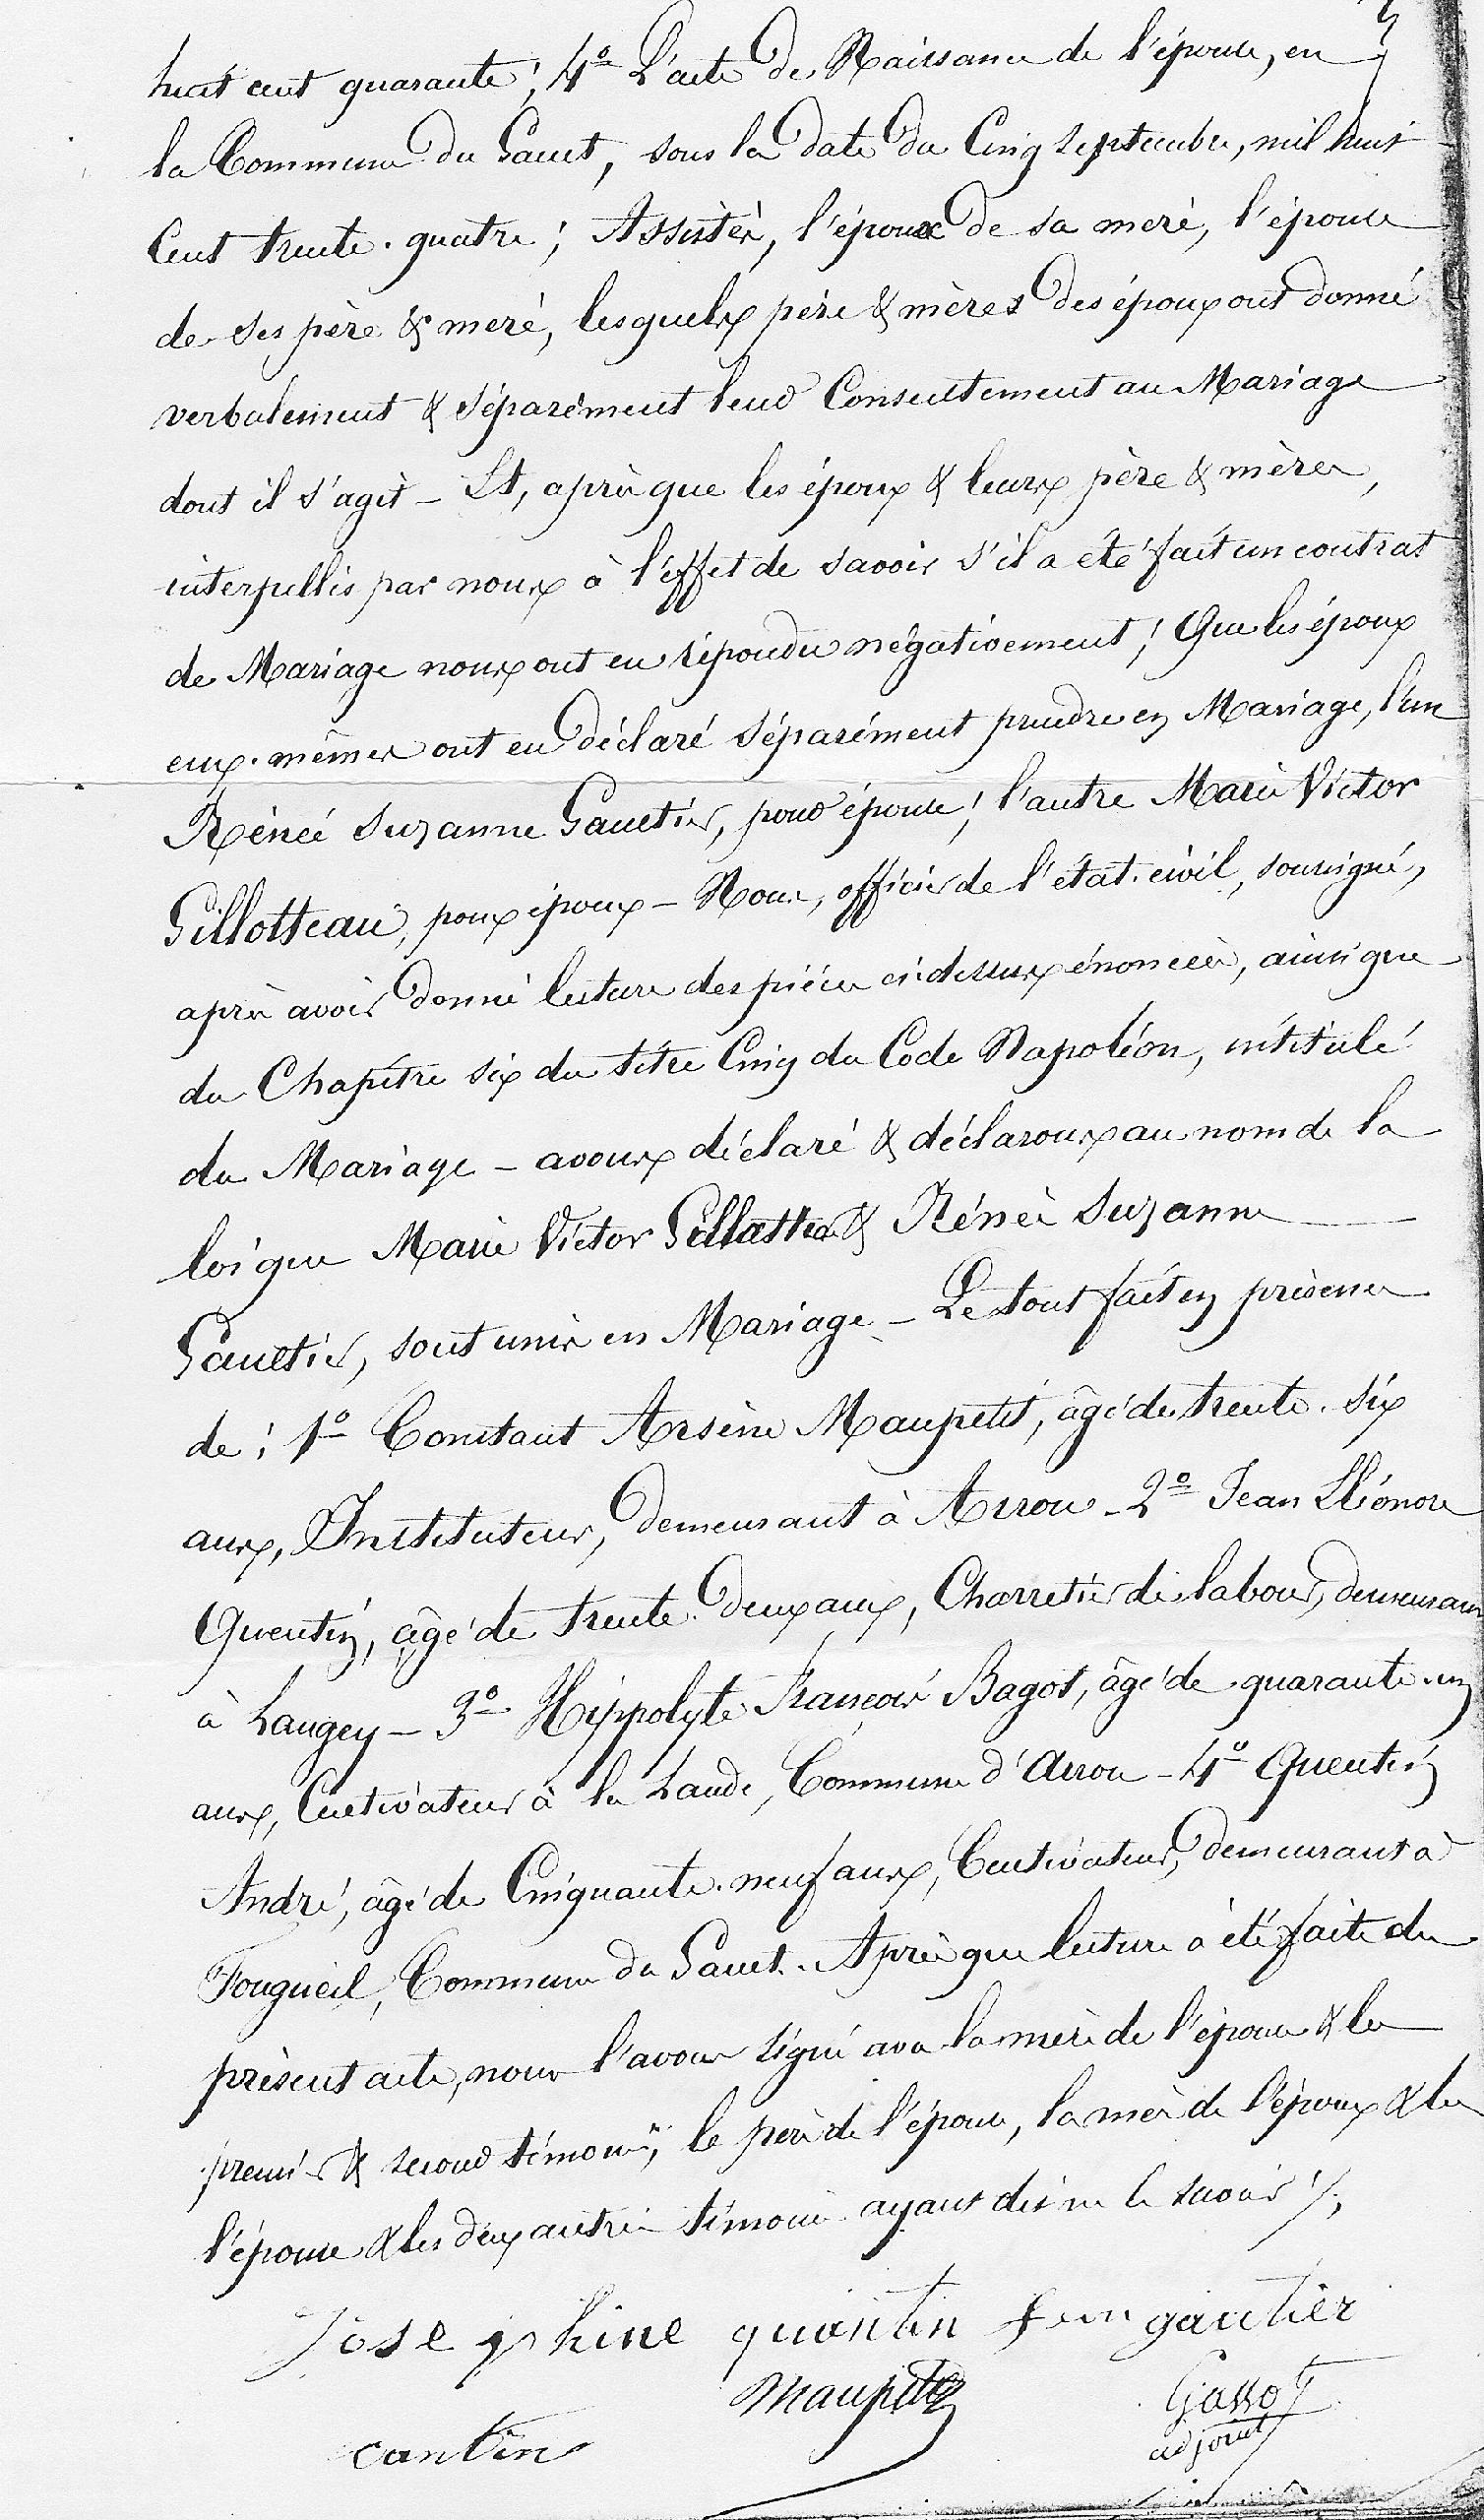 huit cent quarante ; 4º L'acte de Naissance de l'épouse, en
la Commune du Gault, sous la date du Cinq septembre, mil huit
Cent trente-quatre ; Assistés, l'époux de sa mere, l'épouse
de ses père & meré, lesquels père & mères des époux ont donné
verbalement & séparément leur Consentement au Mariage
dont il s'agit - Et, après que les époux & leurs père & mères,
interpellés par nous à l'effet de savoir s'il a été fait un contrat
de Mariage nous ont eu répondu négativement ; Que les époux
eux-mêmes ont eu déclaré séparément prendre en Mariage, l'un
Rénée Suzanne Gaultier, pour épouse ; l'autre Marie Victor
Gillotteau, pour époux - Nous, officier de l'état-civil, soussigné,
après avoir donné lecture des pièces ci-dessus énoncées, ainsi que
du Chapitre six du titre Cinq du Code Napoléon, intitulé
du Mariage - avons déclaré & déclarons au nom de la
loi que Marie Victor Gillotteau & Rénée Suzanne
Gaultier, sont unis en Mariage - Le tout fait en présence
de : 1º Constant Arsène Maupetit, âgé de trente-six
ans, Instituteur, demeurant à Arrou - 2º Jean Lléonore
Quentin, âgé de trente-deux ans, Charretier de labour, demeurant
à Langey - 3º Hippolyte François Bagot, âgé de quarante-un
ans, Cultivateur à la Lande, Commune d'Arrou - 4º Quentin
André, âgé de Cinquante-neuf ans, Cultivateur, demeurant à
Fougueil, Commune du Gault. Après que lecture a été faite du
présent acte, nous l'avons signé avec la mère de l'épouse & les
premier & second témoins, le père de l'épouse, la mère de l'époux & les
l'épouse & les deux autres témoins ayant dit ne le savoir ./.
Josephine quantin fem gautier
Maupetit Gassot
cantin adjoint